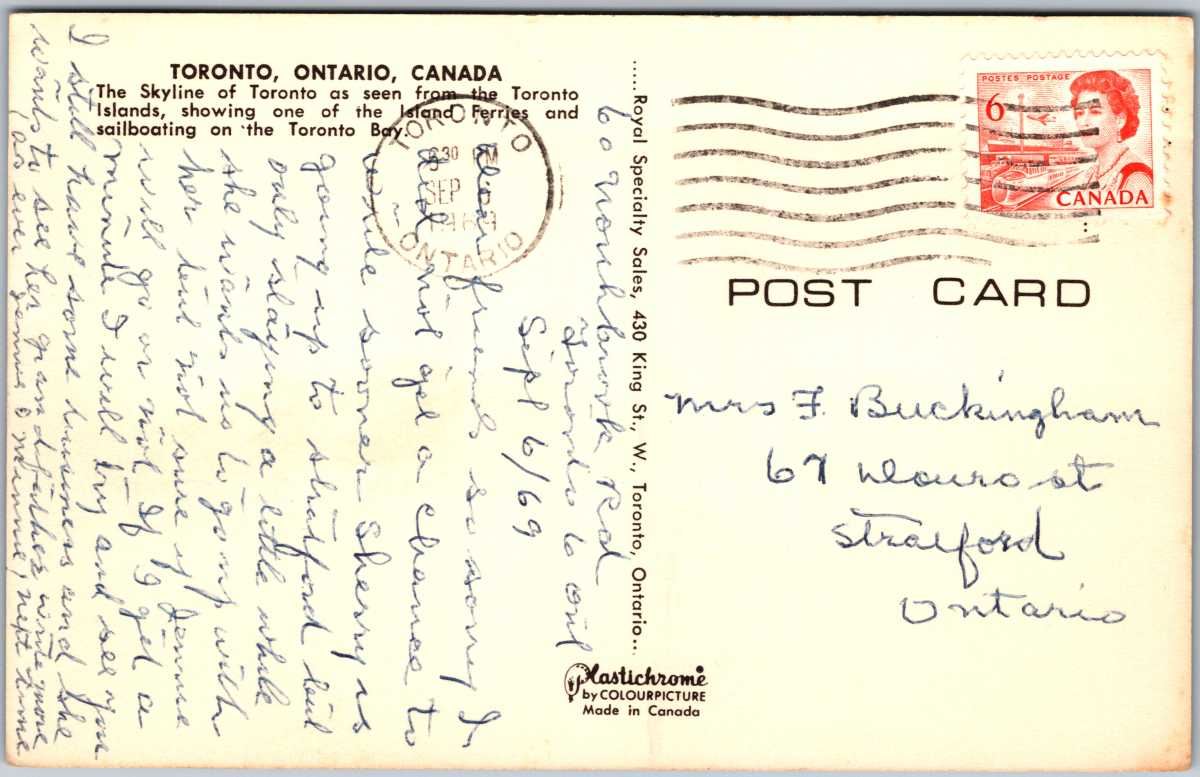 TORONTO, ONTARIO, CANADA
The Skyline of Toronto as seen from the Toronto
Islands, showing one of the Island Ferries and
sailboating on the Toronto Bay.
TORONTO
30 PM
SEP
ONTARIO
60 Rd
Toronto 6 Ont
Sept 6/69
friends so sorry I
did not get a chance to
write sooner Sherry is
going up to Stratford but
only staying a little while
she wants us to go up with
her but not sure if
will go or not If I get a
minute I will try and see you
I still have some business and she
wants to see her grandfather write more
next time
as ever
.....Royal Specialty Sales, 430 King St., W., Toronto, Ontario...
Plastichrome
by COLOURPICTURE
Made in Canada
POSTES POSTAGE
6
CANADA
POST CARD
Mrs F. Buckingham
67 Douro st
Stratford
Ontario